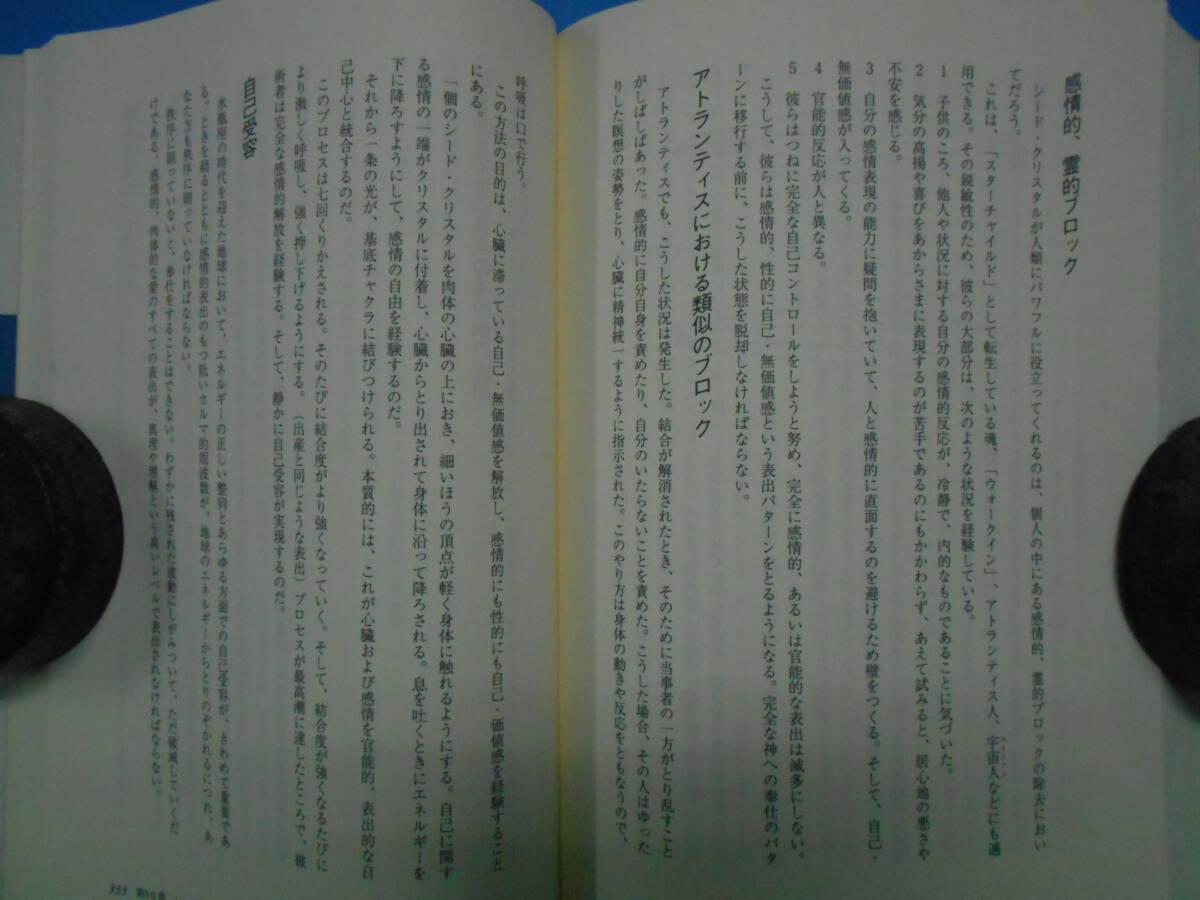 感情的、霊的ブロック
シード・クリスタルが人類にパワフルに役立ってくれるのは、個人の中にある感情的、霊的ブロックの除去におい
てだろう。
これは、「スターチャイルド」として転生している魂、「ウォークイン」、アトランティス人、宇宙人などにも適
用できる。その鋭敏性のため、彼らの大部分は、次のような状況を経験している。
1 子供のころ、他人や状況に対する自分の感情的反応が、冷静で、内的なものであることに気づいた。
2 気分の高揚や喜びをあからさまに表現するのが苦手であるのにもかかわらず、あえて試みると、居心地の悪さや
不安を感じる。
3 自分の感情表現の能力に疑問を抱いていて、人と感情的に直面するのを避けるため壁をつくる。そして、自己・
無価値感が入ってくる。
4 官能的反応が人と異なる。
5 彼らはつねに完全な自己コントロールをしようと努め、完全に感情的、あるいは官能的な表出は滅多にしない。
こうして、彼らは感情的、性的に自己・無価値感という表出パターンをとるようになる。完全な神への奉仕のパタ
ーンに移行する前に、こうした状態を脱却しなければならない。
アトランティスにおける類似のブロック
アトランティスでも、こうした状況は発生した。結合が解消されたとき、そのために当事者の一方がとり乱すこと
がしばしばあった。感情的に自分自身を責めたり、自分のいたらないことを責めた。こうした場合、その人はゆった
りした瞑想の姿勢をとり、心臓に精神統一するように指示された。このやり方は身体の動きや反応をともなうので、
呼吸は口で行う。
この方法の目的は、心臓に滞っている自己・無価値感を解放し、感情的にも性的にも自己・価値感を経験すること
にある。
一個のシード・クリスタルを肉体の心臓の上におき、細いほうの頂点が軽く身体に触れるようにする。自己に関す
る感情の一端がクリスタルに付着し、心臓からとり出されて身体に沿って降ろされる。息を吐くときにエネルギーを
下に降ろすようにして、感情の自由を経験するのだ。
それから一条の光が、基底チャクラに結びつけられる。本質的には、これが心臓および感情を官能的、表出的な自
己中心と統合するのだ。
このプロセスは七回くりかえされる。そのたびに結合度がより強くなっていく。そして、結合度が強くなるたびに
より激しく呼吸し、強く押し下げるようにする。（出産と同じような表出）プロセスが最高潮に達したところで、被
術者は完全な感情的解放を経験する。そして、静かに自己受容が実現するのだ。
自己受容
水瓶座の時代を迎えた地球において、エネルギーの正しい整列とあらゆる方面での自己受容が、きわめて重要であ
る。ときを経るとともに感情的表出のもつ低いカルマ的周波数が、地球のエネルギーからとりのぞかれるにつれ、あ
なた方も秩序に困っていなければならない。
秩序に困っていないと、奉仕をすることはできない。わずかに残された激動にしがみついて、ただ破滅していくだ
けである。感情的、肉体的な愛のすべての表出が、真理や理解という高いレベルで表出されなければならない。
333